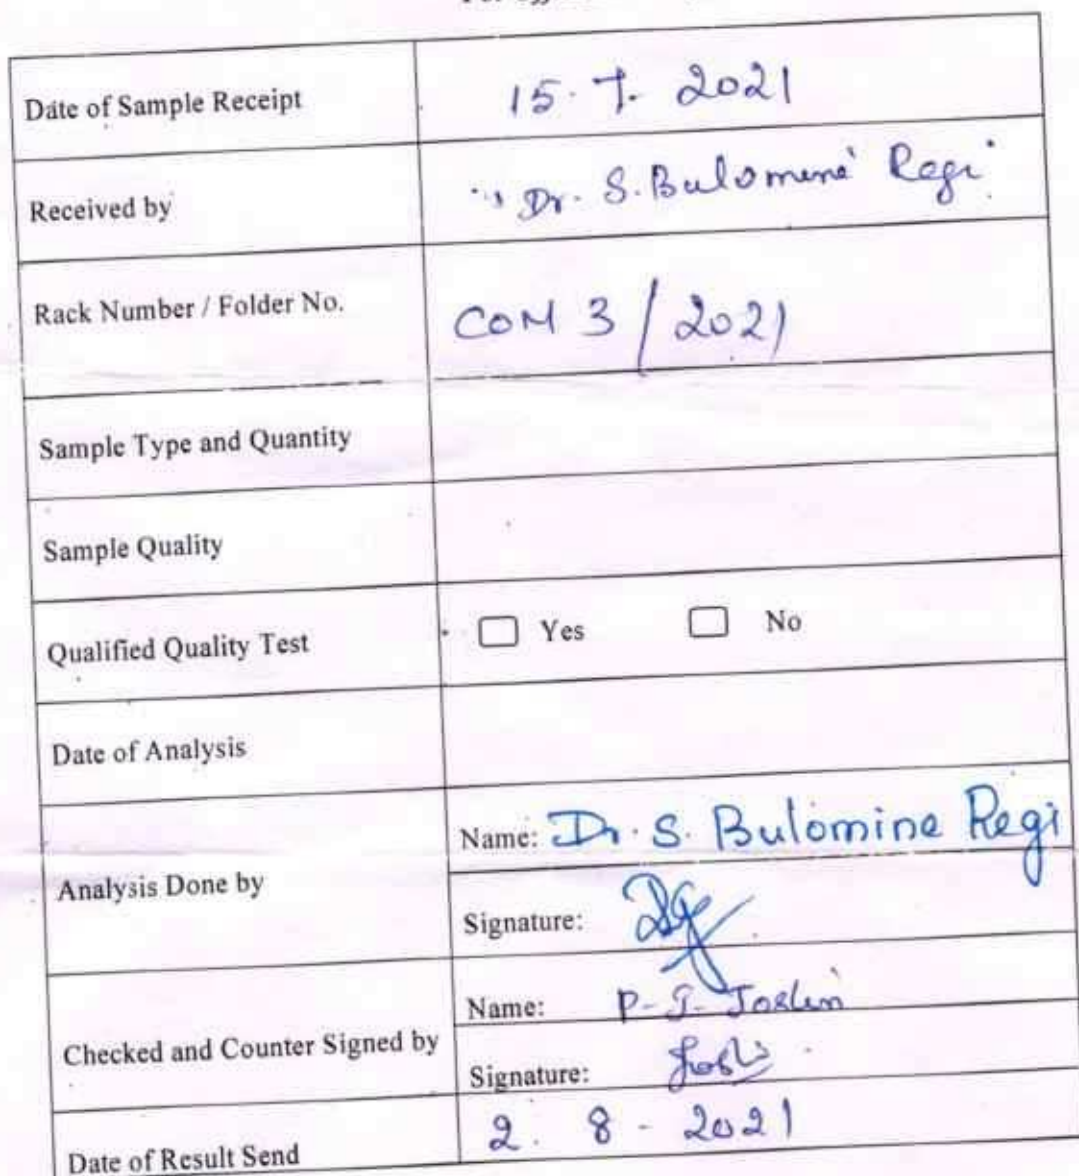 Date of Sample Receipt 15. 7. 2021
Received by Dr. S. Bulomine Regi
Rack Number / Folder No. COM 3 / 2021
Sample Type and Quantity
Sample Quality
Qualified Quality Test Yes No
Date of Analysis
Name: Dr. S. Bulomine Regi
Analysis Done by
Signature:
Name: P. J. Joslin
Checked and Counter Signed by
Signature:
Date of Result Send 2. 8 - 2021